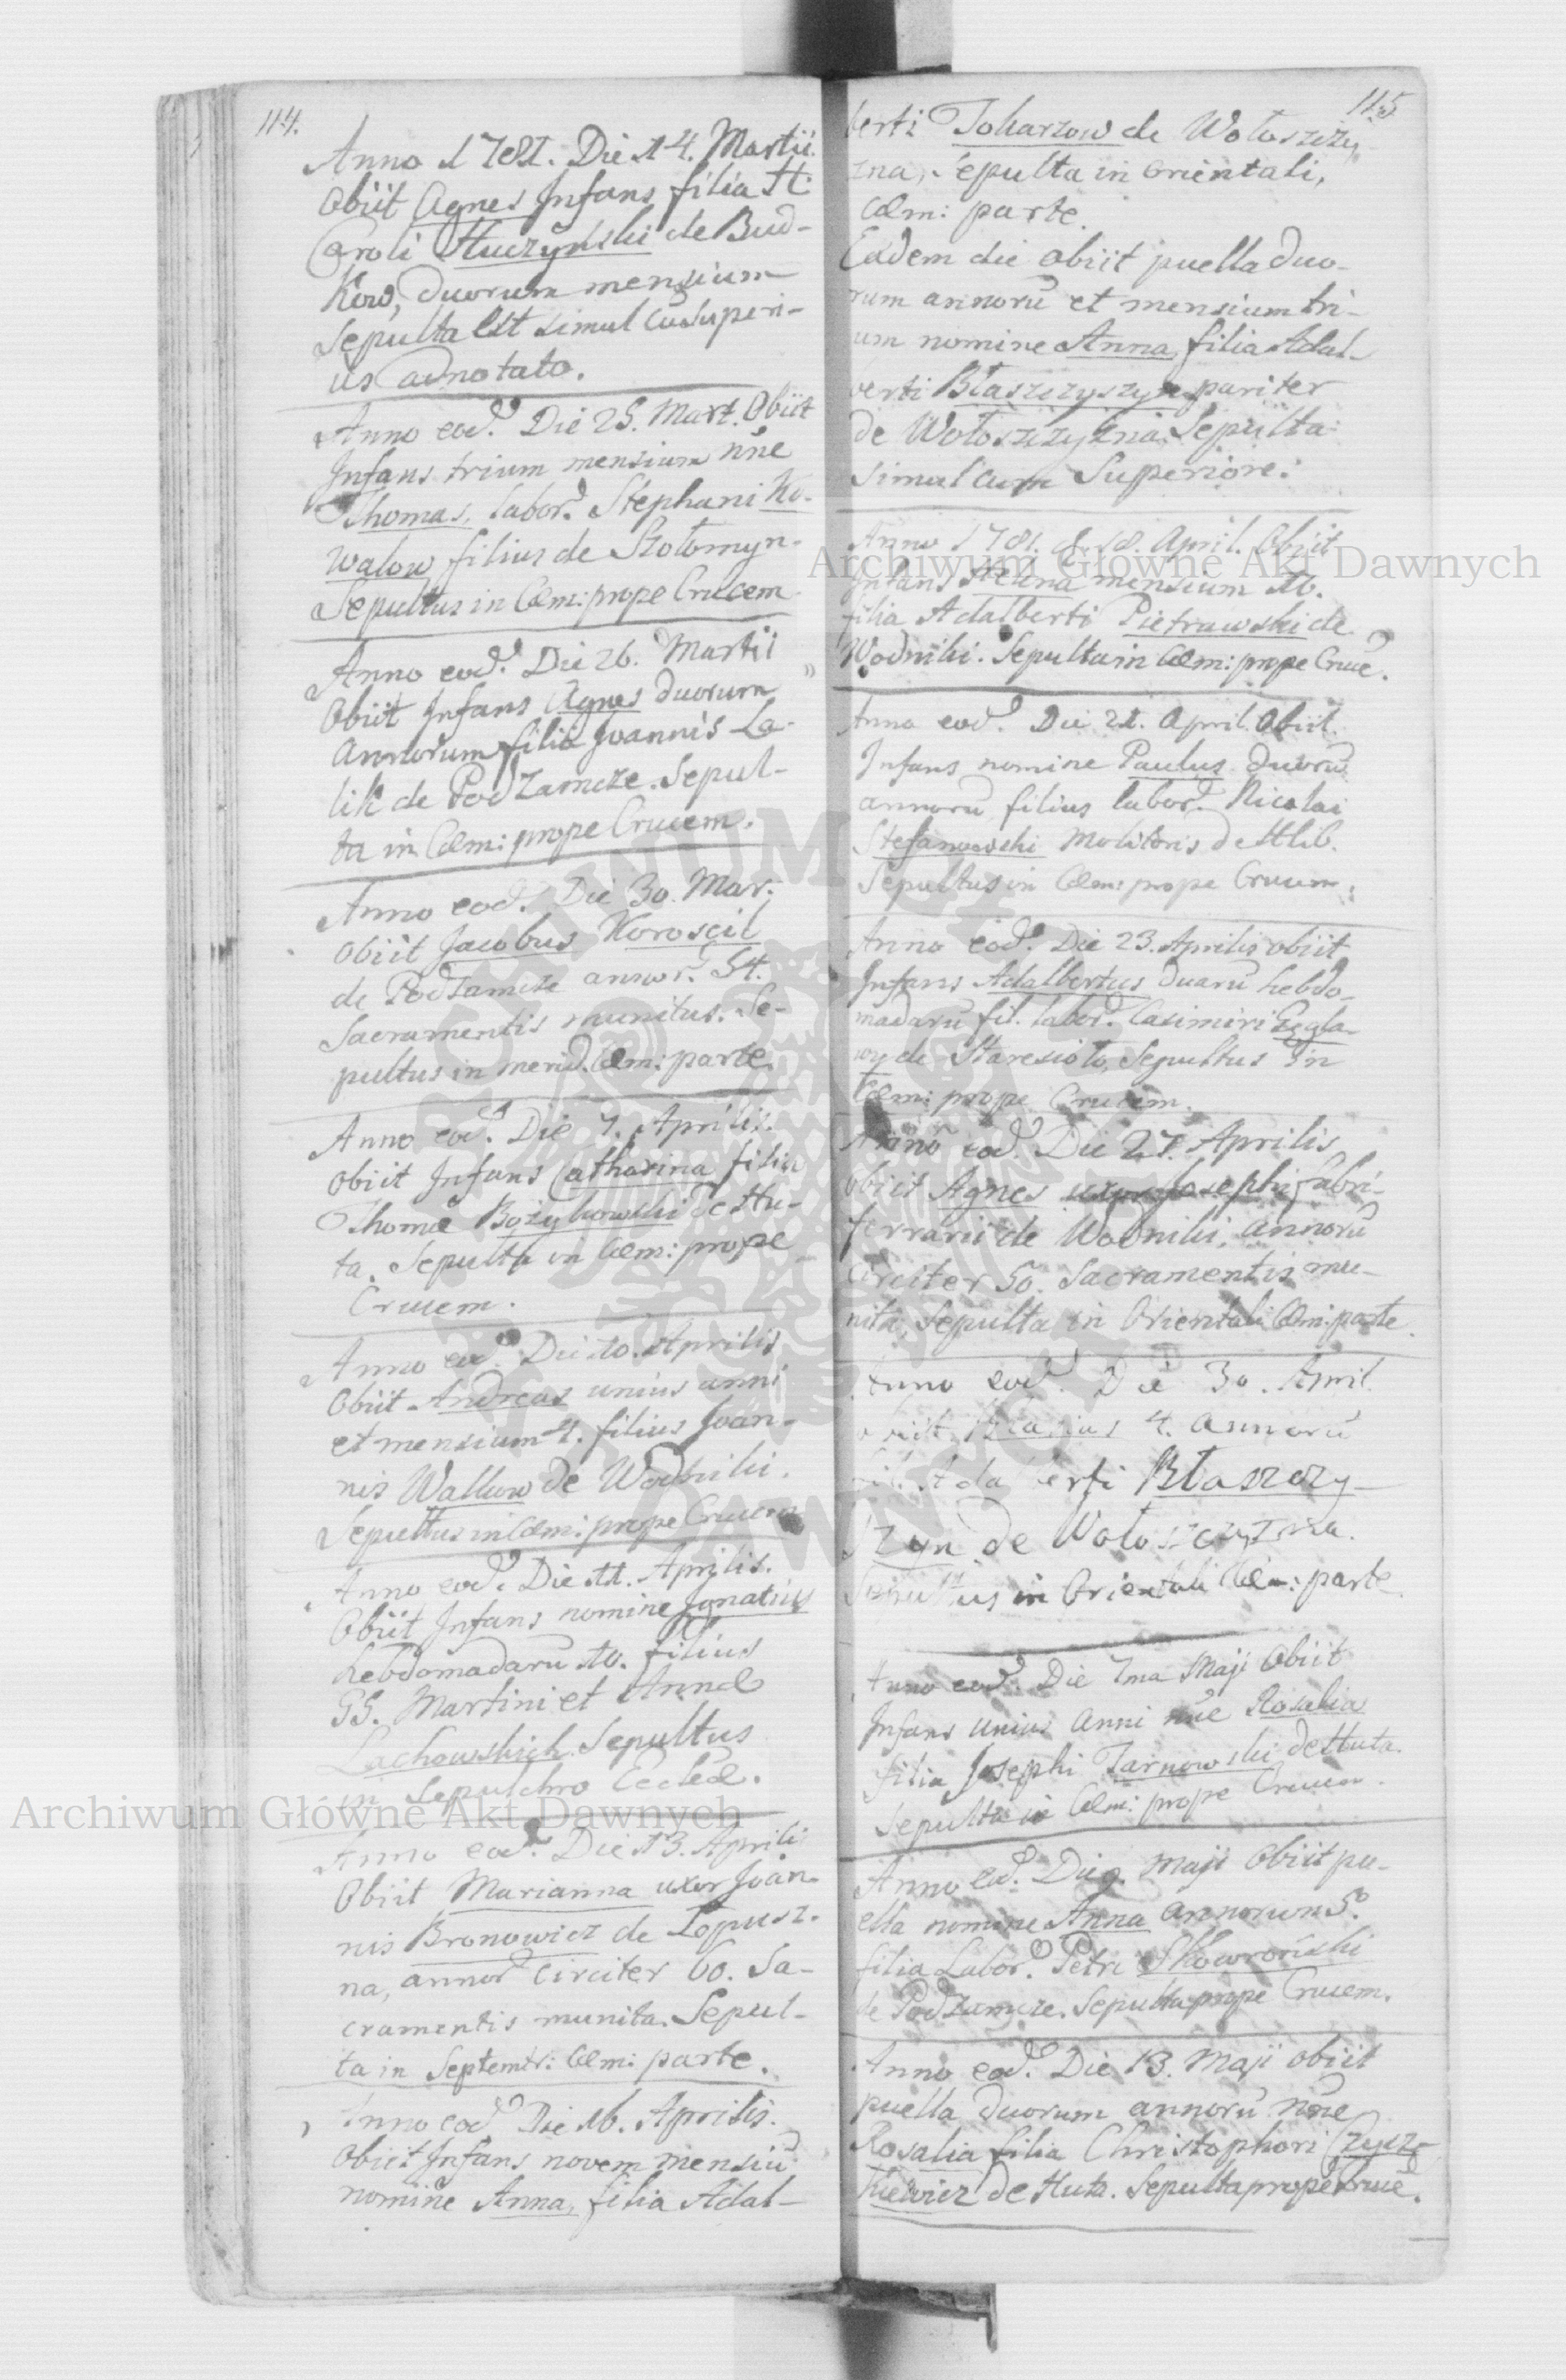 114.
Anno 1781. Die 14. Martii.
Obiit Agnes Infans filia H:
Caroli Huczyński de Bud-
Kow, duorum mensium
Sepulta Est simul cū superi-
us adnotato.
Anno eod. Die 25. Mart. Obiit
Infans trium mensium nñe
Thomas, labor. Stephani Ko-
walow filius de Szołomyn.
Sepultus in Cæm: prope Crucem
Anno eod. Die 26. Martii
Obiit Infans Agnes duorum
Annorum filia Joannis La-
lik de PodZamcze. Sepul-
ta in Cæm: prope Crucem.
Anno eod. Die 30. Mar:
Obiit Jacobus Koroscil
de PodZamcze annor. 54.
Sacramentis munitus. Se-
pultus in merid. Cæm: parte.
Anno eod. Die 7. Aprilis.
Obiit Infans Catharina filia
Thomæ Bożykowski de Hu-
ta. Sepulta in Cæm: prope
Crucem.
Anno eod. Die 10. Aprilis
Obiit Andreas unius anni
et mensium 4. filius Joan-
nis Walkow de Wodniki.
Sepultus in Cæm: prope Crucem
Anno eod. Die 11. Aprilis.
Obiit Infans nomine Ignatius
hebdomadarū 10. filius
GG. Martini et Annæ
Lachowskich. Sepultus
in Sepulchro Eccleæ.
Anno eod. Die 13. Aprili
Obiit Marianna uxor Joan-
nis Bronowicz de Łopusz-
na, annor circiter 60. Sa-
cramentis munita. Sepul-
ta in Septemtr: Cæm: parte.
Anno eod Die 16. Aprilis.
Obiit Infans novem mensiū
nomine Anna, filia Adal-
115
berti Tokarzow de Wołoszczy
zna, Sepulta in Orientali,
Cæm: parte.
Eadem die obiit puella duo-
rum annorū et mensium tri-
um nomine Anna filia Adal-
berti Błaszczyszyn pariter
de Wołoszczyzna Sepulta
simul cum Superiore.
Anno 1781. d. 18. April. Obiit
Infans Helena mensium 10.
filia Adalberti Pietrawski de
Wodniki. Sepulta in Cæm: prope Cruce.
Anno eod. Die 21. April. Obiit
Infans nomine Paulus duorū
annorū filius labor. Nicolai
Stefanowski Molitoris de Hlib.
Sepultus in Cæm: prope Crucem.
Anno eod. Die 23. Aprilis obiit
Infans Adalbertus duarū hebdo-
madarū fil. labor. Casimiri
wy de Staresioło, Sepultus in
Cæm: prope Crucem.
Anno eod. Die 27. Aprilis
obiit Agnes uxor Josephi fabri-
ferrarii de Wodniki, annorū
circiter 50. Sacramentis mu-
nita, Sepulta in Orientali Cæm: parte
Anno eod. Die 30. April.
obiit Blasius 4. annorū
fil. Adalberti Błaszczy-
szyn de Wołoszczyzna.
Sepultus in Orientali Cæm: parte
Anno eod. Die 7ma Maji Obiit
Infans unius Anni nñe Rosalia
filia Josephi Tarnowski de Huta.
Sepulta in Cæm: prope Crucem.
Anno eod. Die 9. Maji Obiit pu-
ella nomine Anna annorum 5.
filia Labor. Petri Skowroński
de PodZamcze. Sepulta prope Crucem.
Anno eod. Die 13. Maji obiit
puella duorum annorū nñe
Rosalia filia Christophori Czyż-
kiewicz de Huta. Sepulta prope Cruce.
Archiwum Główne Akt Dawnych
Archiwum Główne Akt Dawnych